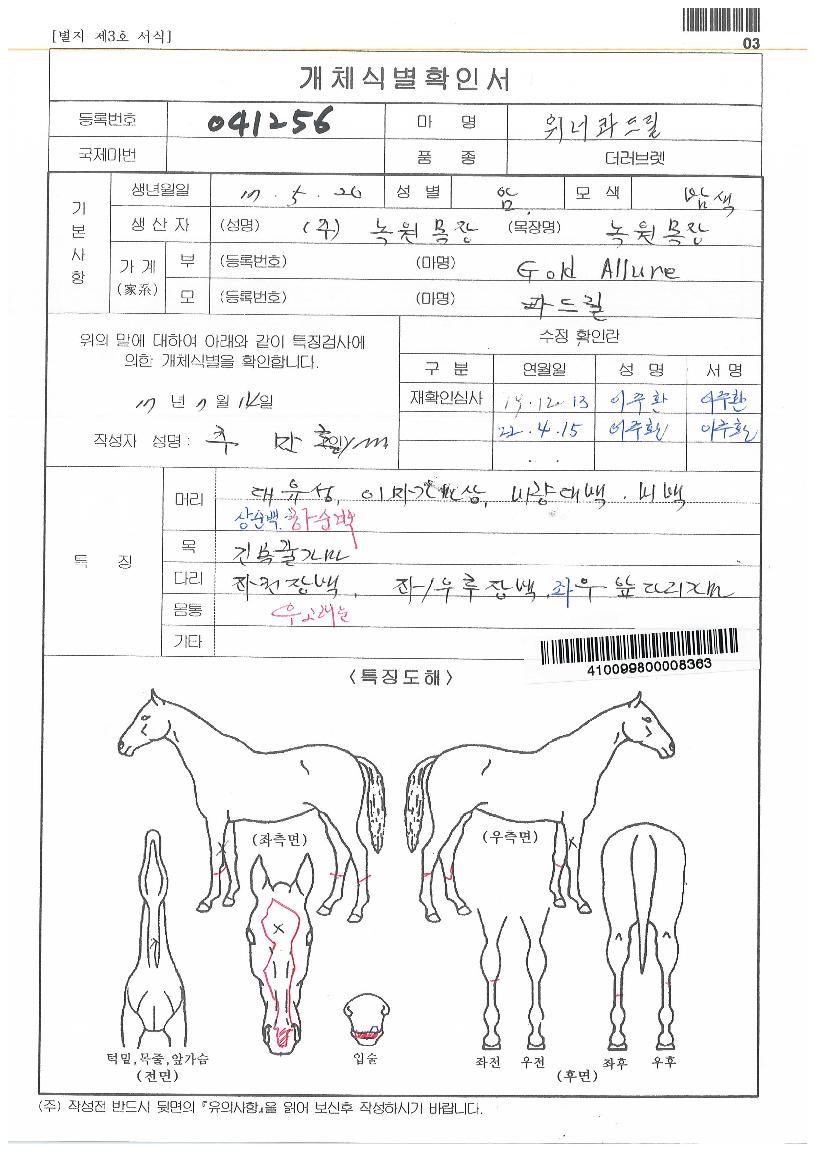 [별지 제3호 서식]
03
개체식별확인서
등록번호 041256 마 명 위너콰드릴
국제마번 품 종 더러브렛
기본사항
생년월일 17. 5. 20 성 별 암 모 색 밤색
생 산 자 (성명) (주) 녹원목장 (목장명) 녹원목장
가 계 (家系) 부 (등록번호) (마명) Gold Allure
모 (등록번호) (마명) 콰드릴
위의 말에 대하여 아래와 같이 특징검사에
의한 개체식별을 확인합니다.
17 년 7 월 14일
작성자 성명 :
수정 확인란
구 분 연월일 성 명 서 명
재확인심사 19.12.13 이주환 이주환
22.4.15 이주환 이주환
. .
특 징
머리 대유성, 비량대백. 비백
상순백. 하순백
목
다리 좌전장백, 좌/우후장백, 좌우 앞다리
몸통
기타
410099800008363
<특징도해>
(좌측면) (우측면)
턱밑,목줄,앞가슴
(전면)
입술
좌전 우전 좌후 우후
(후면)
(주) 작성전 반드시 뒷면의 『유의사항』을 읽어 보신후 작성하시기 바랍니다.